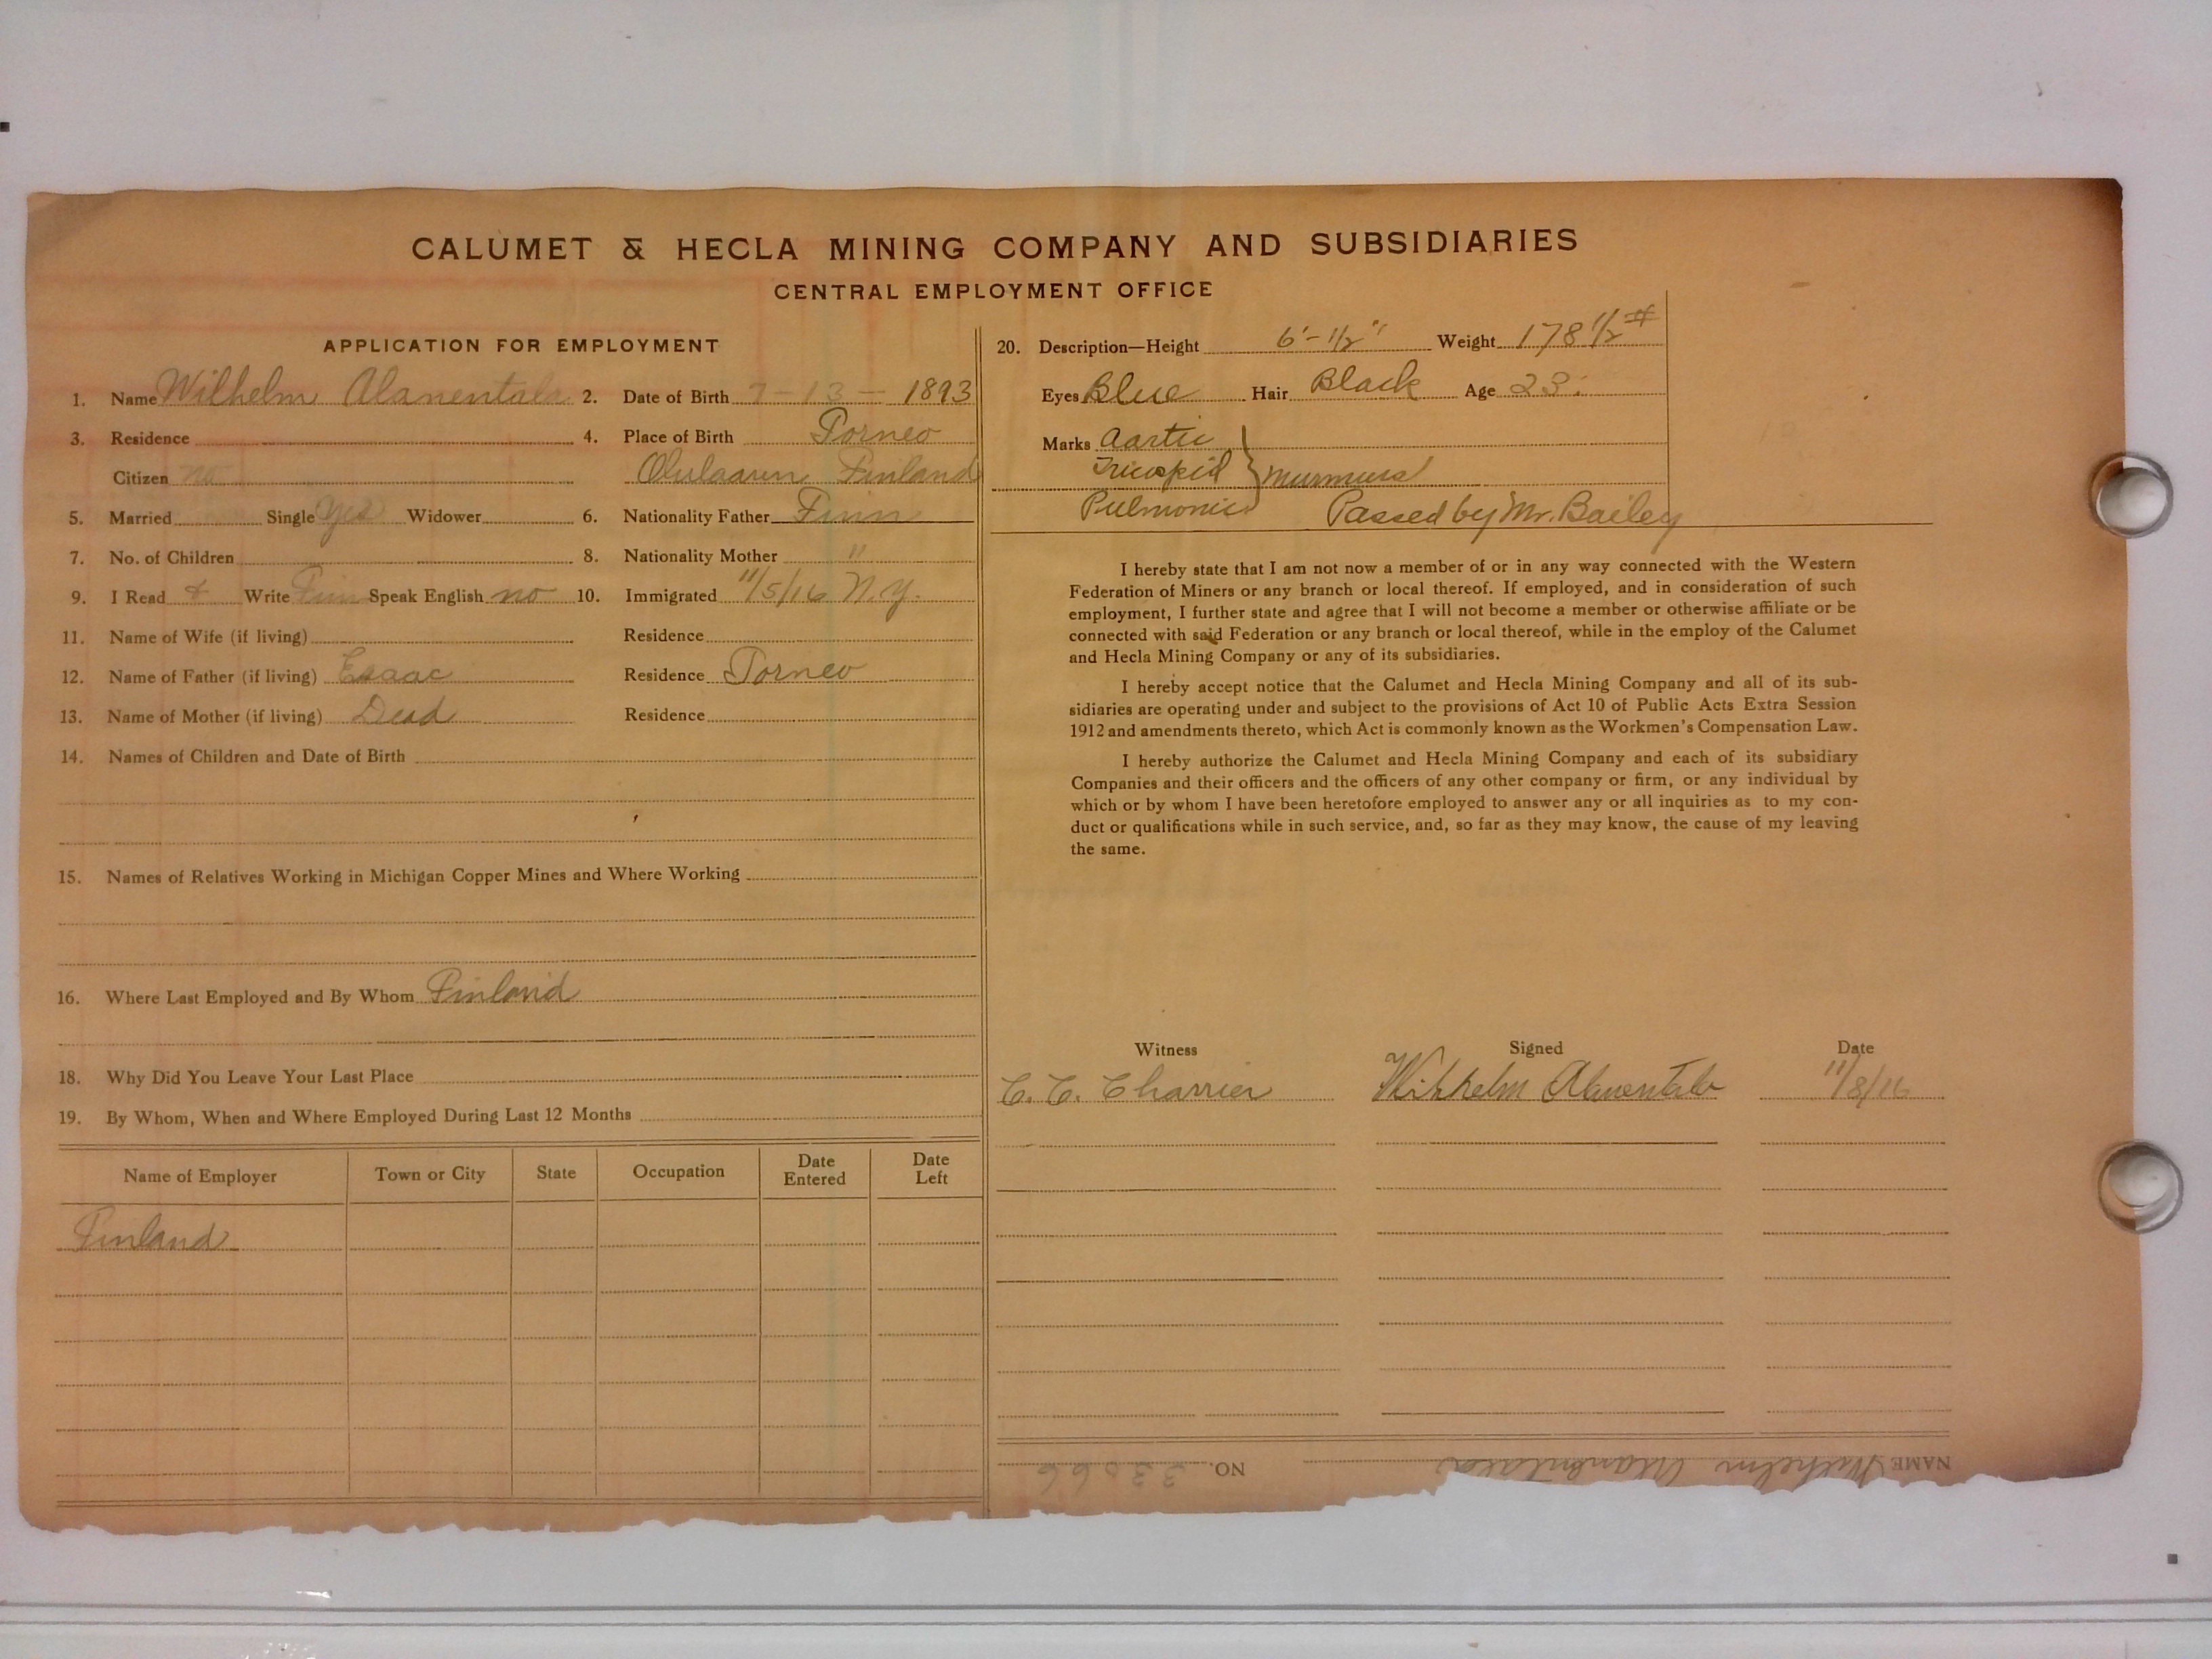 CALUMET & HECLA MINING COMPANY AND SUBSIDIARIES
CENTRAL EMPLOYMENT OFFICE
APPLICATION FOR EMPLOYMENT
1. Name Wilhelm Alanentalo 2. Date of Birth 7-13-1893
3. Residence 4. Place of Birth Torneo
Citizen no Finland
5. Married Single Yes Widower 6. Nationality Father Finn
7. No. of Children 8. Nationality Mother "
9. I Read & Write Finn Speak English no 10. Immigrated 11/5/16 N.Y.
11. Name of Wife (if living) Residence
12. Name of Father (if living) Esaac Residence Torneo
13. Name of Mother (if living) Dead Residence
14. Names of Children and Date of Birth
15. Names of Relatives Working in Michigan Copper Mines and Where Working
16. Where Last Employed and By Whom Finland
18. Why Did You Leave Your Last Place
19. By Whom, When and Where Employed During Last 12 Months
Name of Employer Town or City State Occupation Date Entered Date Left
Finland
20. Description—Height 6'-1/2" Weight 178 1/2 #
Eyes Blue Hair Black Age 23.
Marks Aartic
Tricuspid } murmurs
Pulmonic Passed by Mr. Bailey
I hereby state that I am not now a member of or in any way connected with the Western
Federation of Miners or any branch or local thereof. If employed, and in consideration of such
employment, I further state and agree that I will not become a member or otherwise affiliate or be
connected with said Federation or any branch or local thereof, while in the employ of the Calumet
and Hecla Mining Company or any of its subsidiaries.
I hereby accept notice that the Calumet and Hecla Mining Company and all of its sub-
sidiaries are operating under and subject to the provisions of Act 10 of Public Acts Extra Session
1912 and amendments thereto, which Act is commonly known as the Workmen's Compensation Law.
I hereby authorize the Calumet and Hecla Mining Company and each of its subsidiary
Companies and their officers and the officers of any other company or firm, or any individual by
which or by whom I have been heretofore employed to answer any or all inquiries as to my con-
duct or qualifications while in such service, and, so far as they may know, the cause of my leaving
the same.
Witness Signed Date
C. C. Charrier Wilhelm Alanentalo 11/8/16
NAME Wilhelm Alanentalo NO. 33066